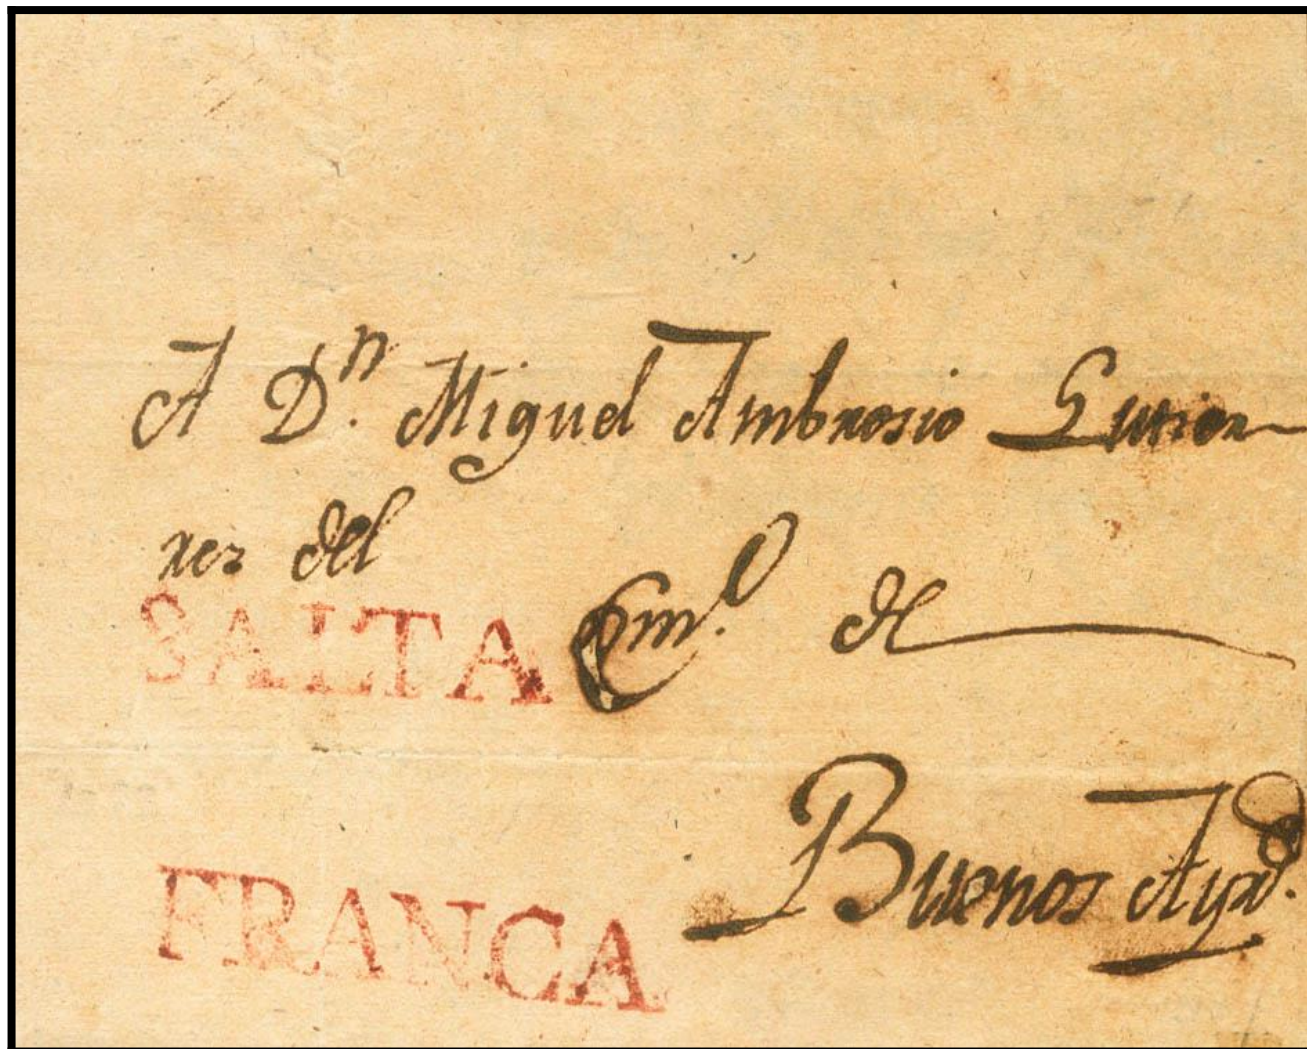 A Dⁿ. Miguel Ambrosio Gutier
rez del
SALTA Com.º de
Buenos Ayrˢ.
FRANCA